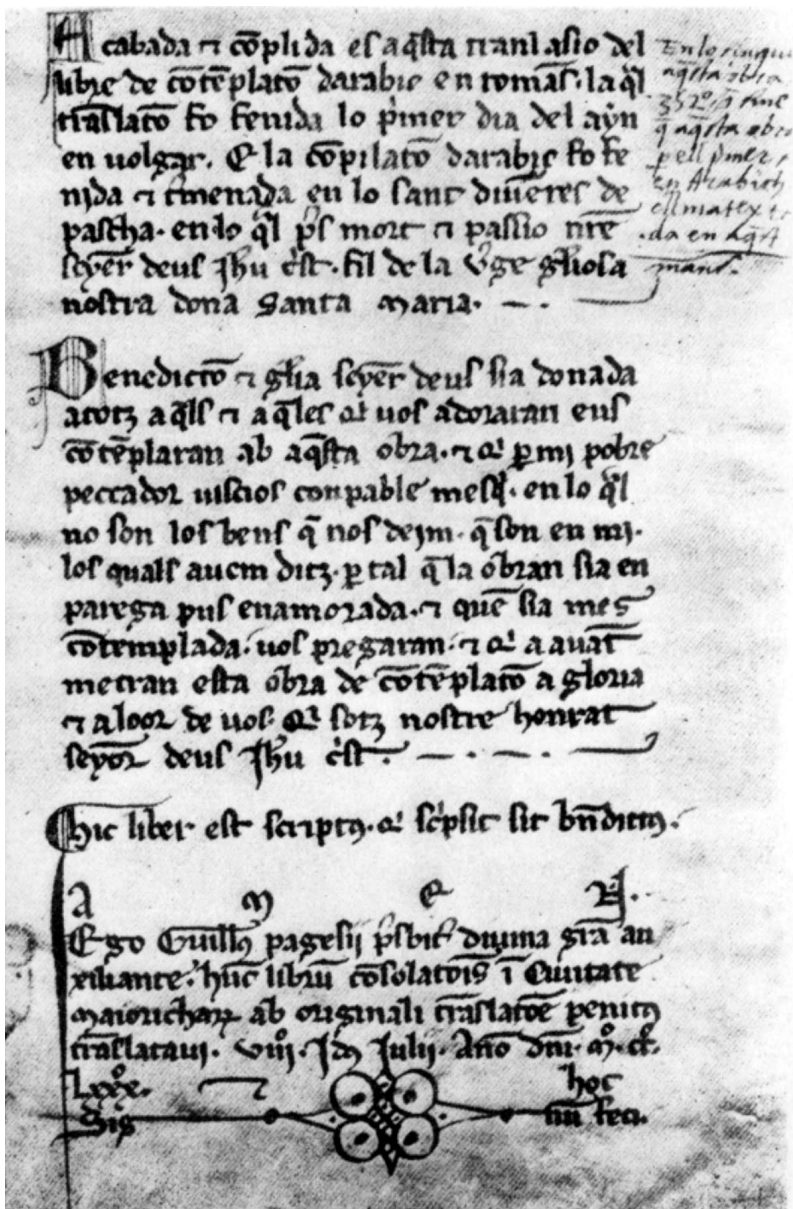 Acabada ⁊ cōplida es aq̄sta tranlasio del
libre de cōtēplatō darabic en romāſ. la q̄l
trāslatō fo fenida lo p̄mer dia del ayn
en uolgar. E la cōpilatō darabic fo fe
nida ⁊ t̄menada en lo sant diuēres de
pascha. en lo q̄l p̄s mort ⁊ passio n̄re
seyēr deus Jhū c̄st. fil de la v̄ge gl̄iosa
nostra dona Santa Maria.
En lo sinqu
aq̄sta obra
q̄ aq̄sta obra
p ell p̄mer
en Arabich
ell matex
da en aq̄st
Benedictō ⁊ gl̄ia seyēr deus sia donada
a totz aq̄ls ⁊ aq̄les q̄ uos adoraran eus
cōtēplaran ab aq̄sta obra. ⁊ q̄ p̄ mj pobre
peccador uiscios conpable mesq̄. en lo q̄l
no son los bens q̄ nos deim. q̄ son en mj.
los quals auem ditz. p̄ tal q̄ la obran sia en
parega pus enamorada. ⁊ quē sia mes
cōtemplada. uos pregaran. ⁊ q̄ a auāt
metran esta obra de cōtēplatō a gloria
⁊ a loor de uos. q̄ sotz nostre honrat
seyōr deus Jhū c̄st.
hic liber est scriptꝰ. q̄ sc̄psit sit bn̄dictꝰ.
A M E N.
Ego Guill̄ꝰ pagesij p̄sbit̄ diuina grā au
xiliante. hūc librū cōsolatōis ī Ciuitate
Maioricharꝝ ab originali trāslatōe penitꝰ
trāslataui. viii. Jdꝰ Julij. Anō dn̄i. M̊. cc̊.
Lxxx̊.
hoc
Sig nū feci.